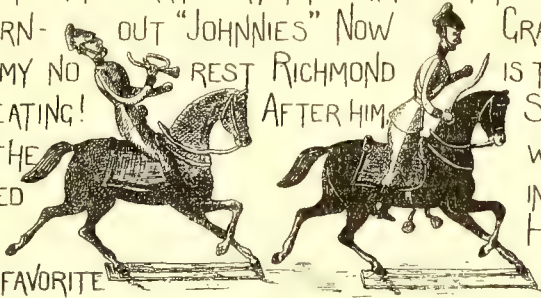 RN- OUT "JOHNNIES" NOW GRA
MY NO REST RICHMOND IS T
EATING! AFTER HIM, S
HE W
ED IN
H
FAVORITE